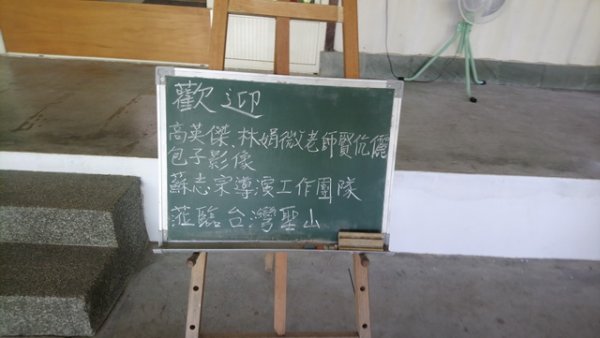 歡迎
高英傑、林娟微老師賢伉儷
包子影像
蘇志宗導演工作團隊
蒞臨台灣聖山